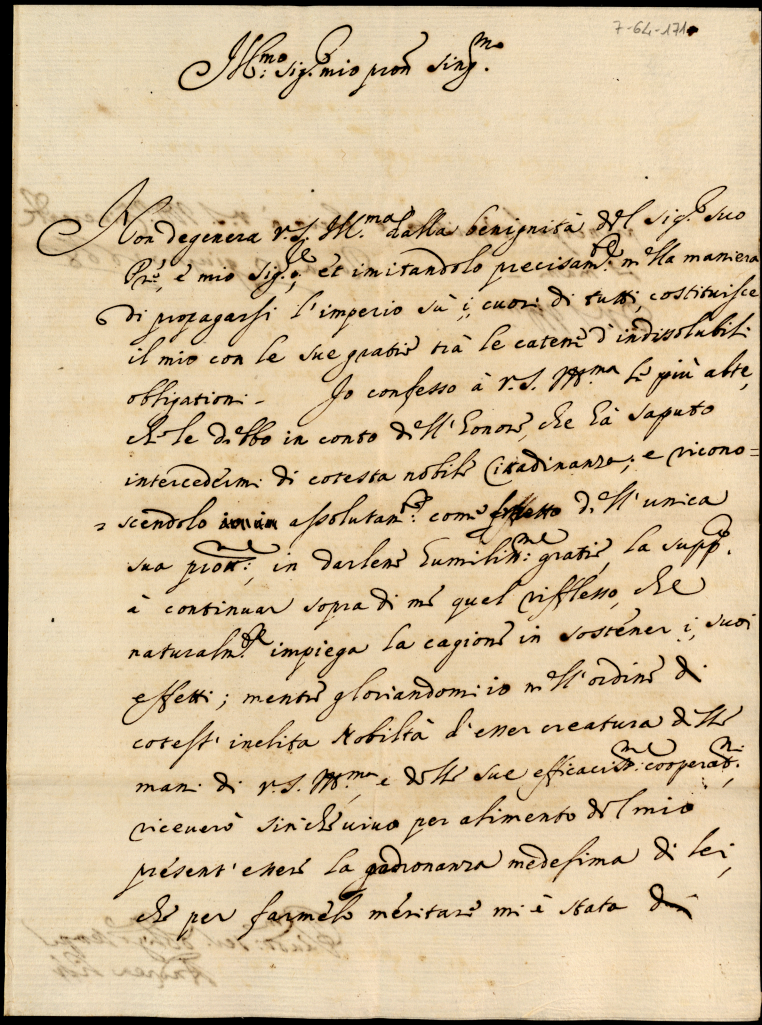 7-64-171
Ill.mo Sig.r mio pron Sing.mo
Non degenera V.S. Ill.ma dalla benignità del Sig.r suo
P.re, e mio Sig.re, et imitandolo precisam.te nella maniera
di propagarsi l'imperio sù i, cuori di tutti, costituisce
il mio con le sue gratie trà le catene d'indissolubili
obligationi. Io confesso à V.S. Ill.ma le più alte,
che le debbo in conto dell'honore, che hà saputo
intercedermi di cotesta nobile Cittadinanza; e ricono=
=scendolo assolutam.te come effetto dell'unica
sua prott.ne, in darlene humiliss.me gratie, la supp.co
à continuar sopra di me quel riflesso, che
naturalm.te impiega la cagione in sostener i, suoi
effetti; mentre gloriandomi io nell'ordine di
cotest'inclita Nobiltà d'esser creatura delle
mani di V.S. Ill.ma, e delle sue efficaciss.me cooperat.ni,
riceverò sin che vivo per alimento del mio
present'essere la padronanza medesima di lei,
che per farmelo meritare mi è stata di